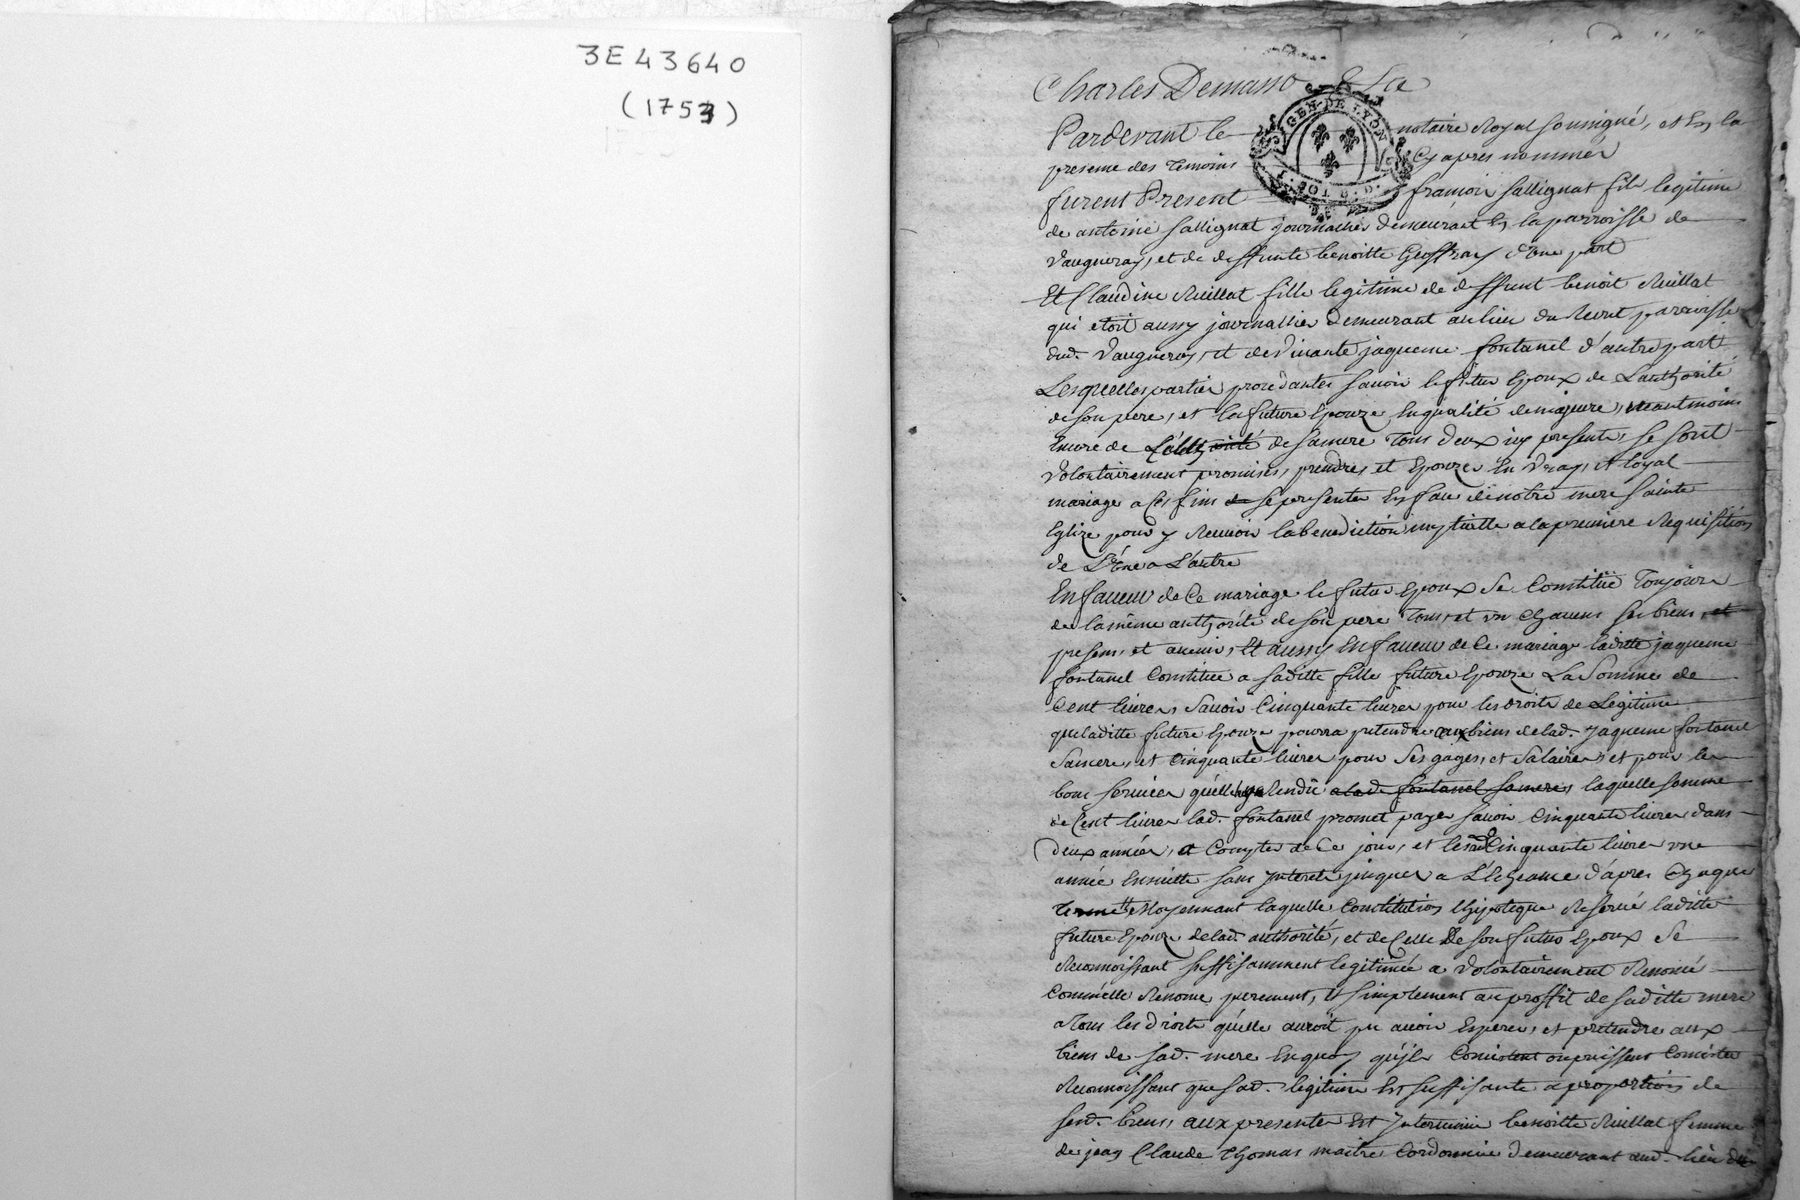 3E43640
(1753)
Charles Demasso
GEN. DE LYON
Pardevant le notaire Royal soussigné, et En la
presence des temoins Cy apres nommés
furent Present francois sallignat fils legitime
de antoine sallignat journallier demeurant En la parroisse de
Vaugneray, et de deffunte benoitte Geoffray d'Une part
Et Claudine Ruillat fille legitime de deffunt benoit Ruillat
qui etoit aussy journallier demeurant au lieu du Recret parroisse
dud. Vaugneray, et de Vivante jaqueme fontanel d'autre part
Lesquelles parties procedantes savoir le futur Epoux de L'authorité
de son pere, et la future Epouze En qualité de majeure, neantmoins
Encore de L'authorité de sa mere Tous deux icy presents, se sont
Volontairement promises, prendre, et Epouzer En Vray, et loyal
mariage a Ces fins de se presenter En face de notre mere sainte
Eglize pour y Recevoir la benediction nuptialle a la premiere Requisition
de L'Une a L'autre
En faveur de Ce mariage le futur Epoux se Constitue Toujours
de la même authorité de son pere Tous, et un chacuns ses biens, et
presens, et avenir, Et aussy En faveur de Ce mariage laditte jaqueme
fontanel Constitue a saditte fille future Epouze La Somme de
Cent livres, Savoir Cinquante livres pour les droits de Legitime
que laditte future Epouze pourra pretendre aux biens de lad. Jaqueme fontanel
Sa mere, et Cinquante livres pour Ses gages, et Salaires, et pour les
bons services qu'elle luy a Rendu a lad. fontanel sa mere, laquelle somme
de Cent livres lad. fontanel promet payer savoir Cinquante livres dans
deux années, a Compter de Ce jour, et les Cinquante livres une
année Ensuitte sans Interets jusques a L'Echeance d'apres Chaque
Terme Moyennant laquelle Constitution Hipoteque Reservé laditte
future Epouze de lad. authorité, et de Celle De son futur Epoux Se
Reconnoissant suffisamment legitimée a Volontairement Renoncé
Comm'elle Renonce purement, Et simplement au proffit de saditte mere
a Tous les droits qu'elle auroit pu avoir Esperer, et pretendre aux
biens de sad. mere En quoy qu'jls Consistent ou puissent Consister
Reconnoissant que sad. legitime Est suffisante a proportion de
sesd. biens, aux presentes Est Intervenue benoitte Ruillat femme
de jean Claude Thomas maitre Cordonnier demeurant aud. lieu du